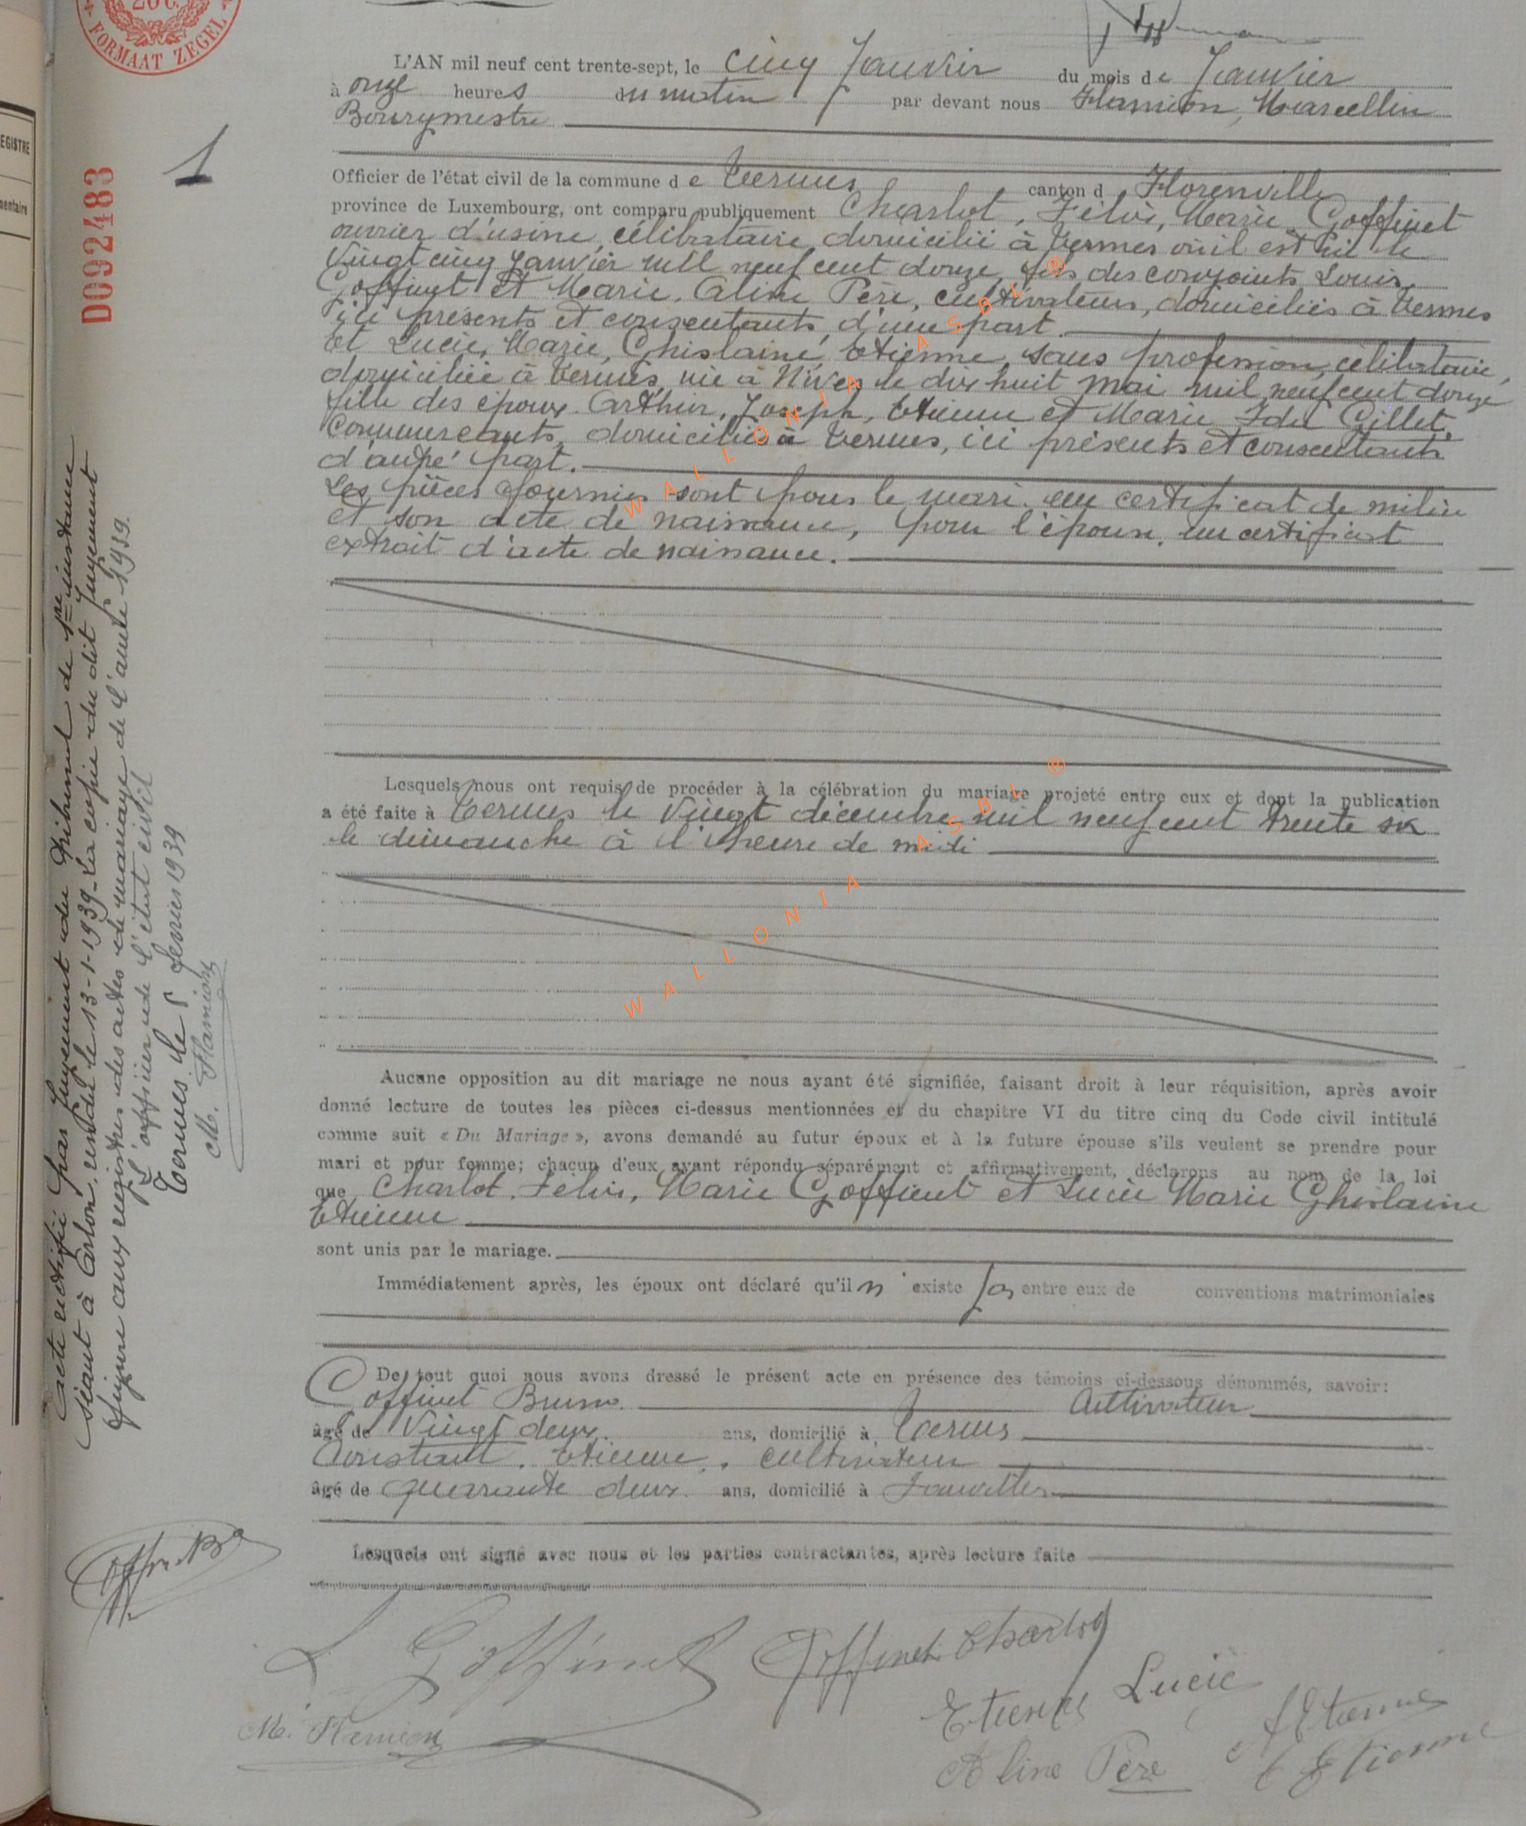 20 C.
FORMAAT ZEGEL
EGISTRE
mentaire
D092483
1
L'AN mil neuf cent trente-sept, le cinq Janvier du mois de Janvier
à onze heures du matin par devant nous Flamion, Marcellin
Bourgmestre
Officier de l'état civil de la commune de Termes canton d Florenville
province de Luxembourg, ont comparu publiquement Charlot, Félix, Marie Goffinet
ouvrier d'usine, célibataire domicilié à Termes où il est né le
Vingt cinq janvier mil neuf cent douze, fils des conjoints Louis
Goffinet et Marie, Aline Père, cultivateurs, domiciliés à Termes
ici présents et consentants, d'une part.
Et Lucie, Marie, Ghislaine, Etienne, sans profession, célibataire,
domiciliée à Termes, née à Nives le dix huit mai mil neuf cent douze
fille des époux Arthur, Joseph, Etienne et Marie Ida Gillet,
commerçants, domiciliés à Termes, ici présents et consentants
d'autre part.
Les pièces fournies sont pour le mari, un certificat de milice
et son acte de naissance, pour l'épouse, un certificat
extrait d'acte de naissance.
Lesquels nous ont requis de procéder à la célébration du mariage projeté entre eux et dont la publication
a été faite à Termes le Vingt décembre mil neuf cent trente six
le dimanche à l'heure de midi
Aucune opposition au dit mariage ne nous ayant été signifiée, faisant droit à leur réquisition, après avoir
donné lecture de toutes les pièces ci-dessus mentionnées et du chapitre VI du titre cinq du Code civil intitulé
comme suit « Du Mariage », avons demandé au futur époux et à la future épouse s'ils veulent se prendre pour
mari et pour femme; chacun d'eux ayant répondu séparément et affirmativement, déclarons au nom de la loi
que Charlot, Félix, Marie Goffinet et Lucie Marie Ghislaine
Etienne
sont unis par le mariage.
Immédiatement après, les époux ont déclaré qu'il n'existe pas entre eux de conventions matrimoniales
De tout quoi nous avons dressé le présent acte en présence des témoins ci-dessous dénommés, savoir:
Goffinet Bruno cultivateur
âgé de Vingt deux ans, domicilié à Termes
Constant, Etienne, cultivateur
âgé de quarante deux ans, domicilié à Fauvillers
Lesquels ont signé avec nous et les parties contractantes, après lecture faite
L Goffinet Goffinet Charlot
M. Flamion Etienne Lucie
Aline Père
Etienne
C Etienne
Goffinet B
Acte rectifié par Jugement du tribunal de 1re instance
séant à Arlon, rendu le 13-1-1939. La copie du dit Jugement
figure aux registres des actes de mariage de l'année 1939.
L'officier de l'état civil
Termes le 8 février 1939
M. Flamion
WALLONIA ASBL ®
WALLONIA ASBL ®